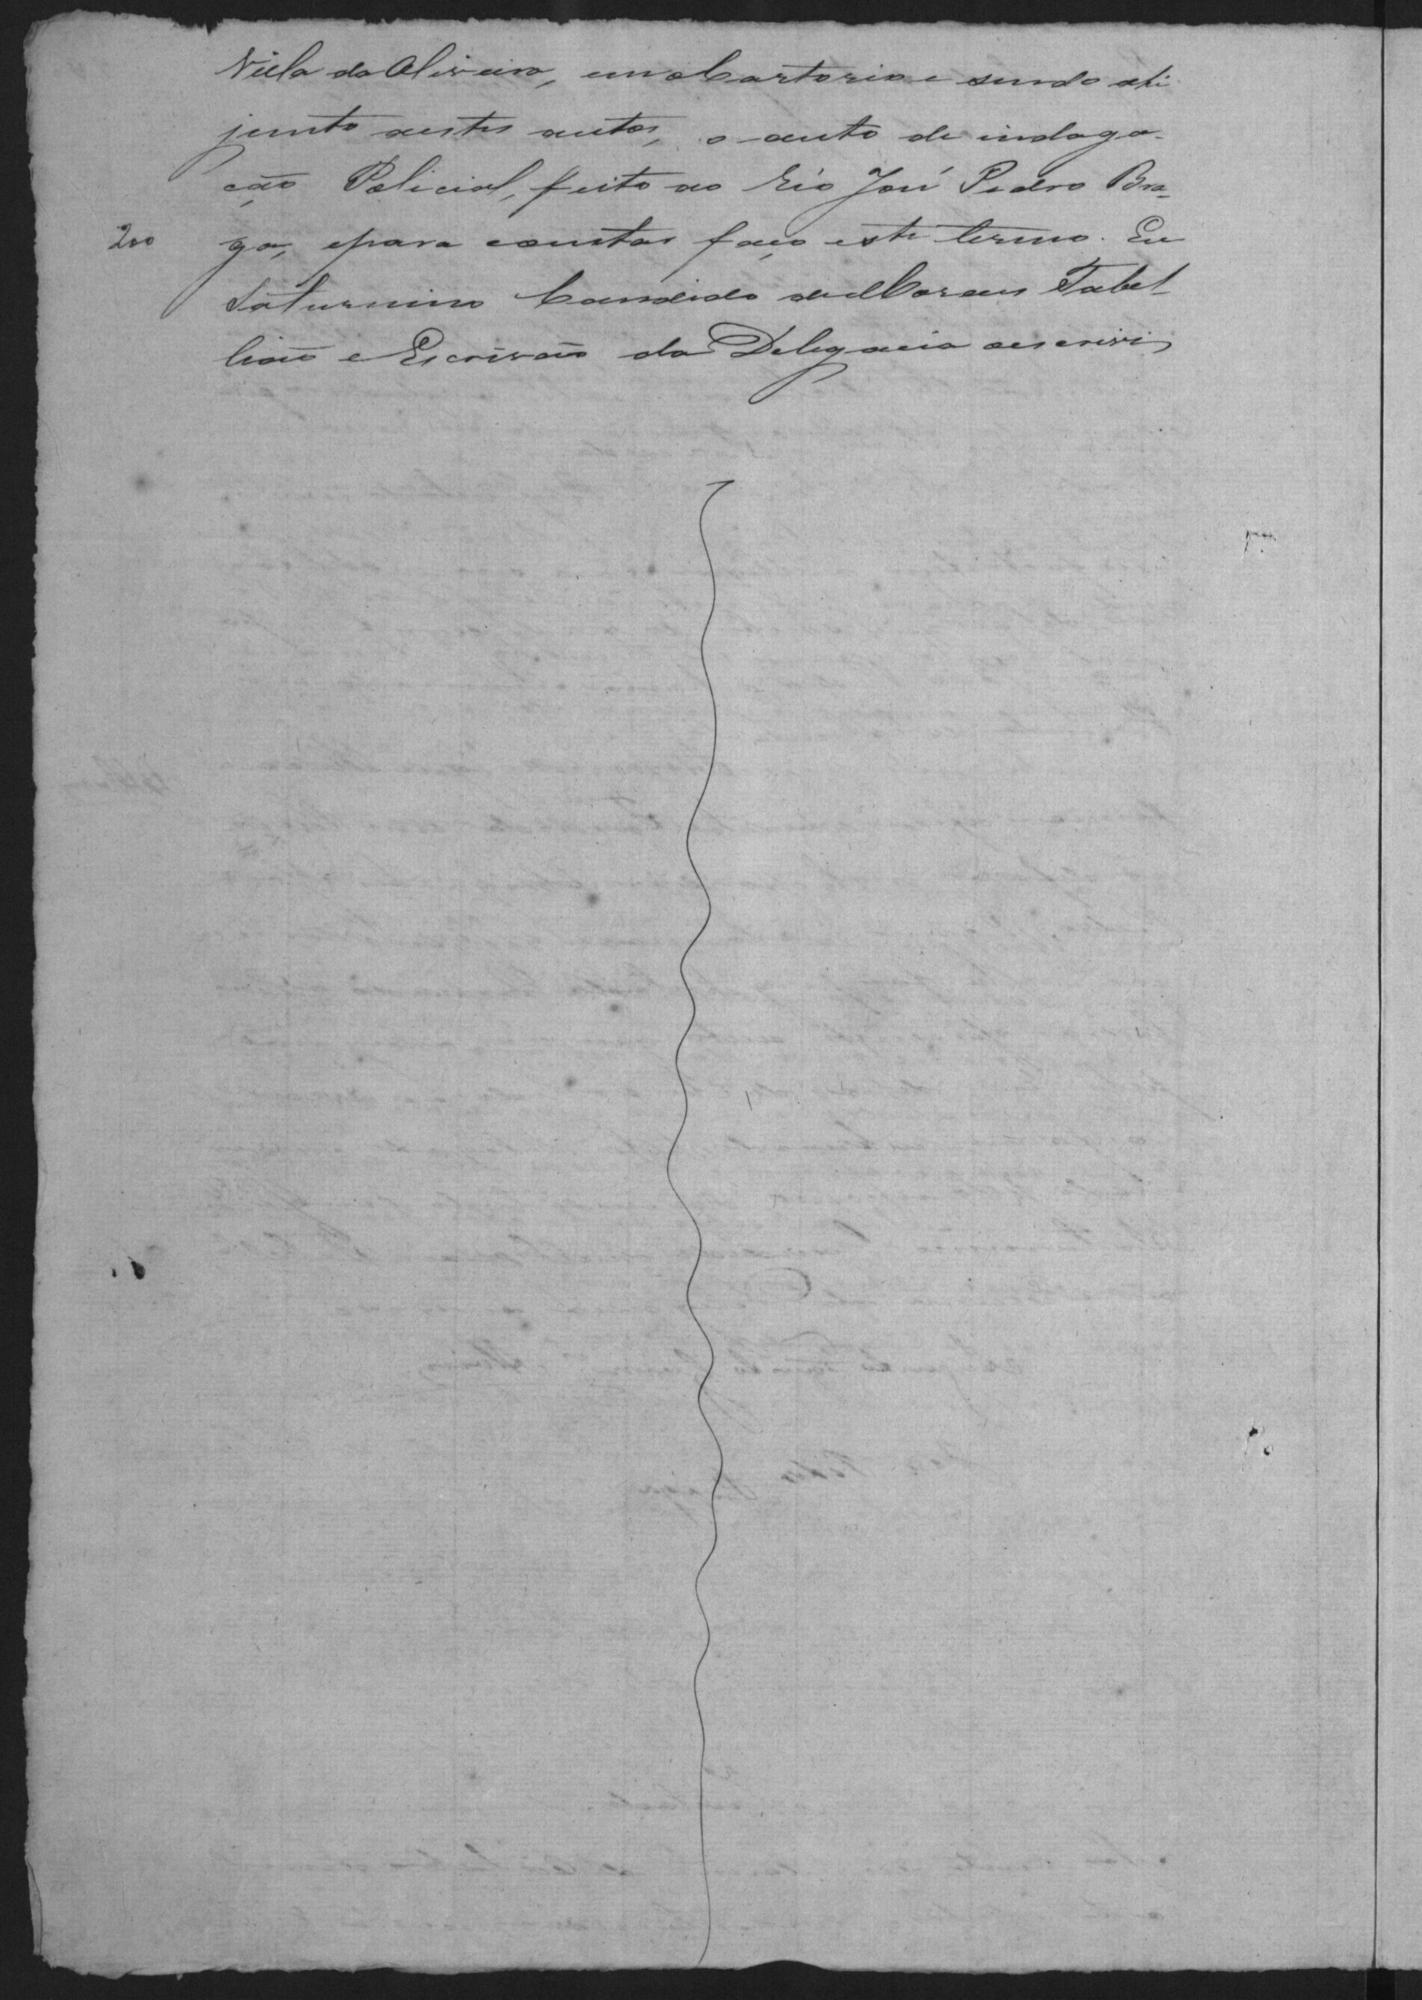 Villa da Oliveira, em o Cartorio e sendo ahi
junto a estes autos, o auto de indaga-
ção Policial, feito ao Réo José Pedro Bra-
200 ga, e para constar faço este termo. Eu
Saturnino Candido de Moraes Tabel-
lião e Escrivão da Delegacia o escrivi,